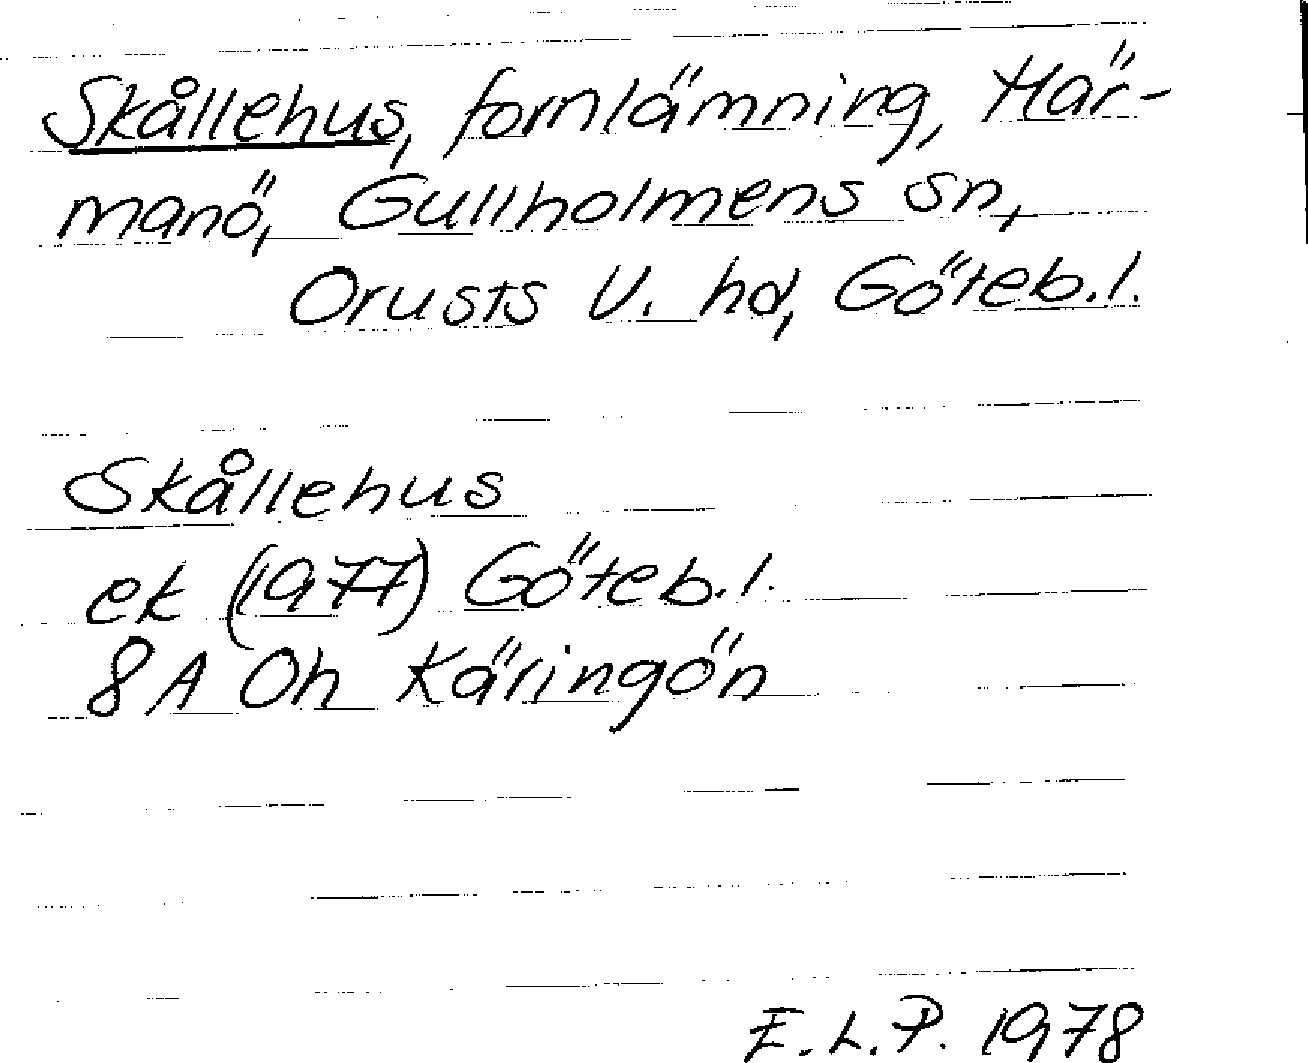 Skållehus, fornlämning, Här-
manö, Gullholmens sn,
Orusts V. hd, Göteb.l.
Skållehus
ek (1977) Göteb.l.
8A Oh Käringön
E.L.P. 1978